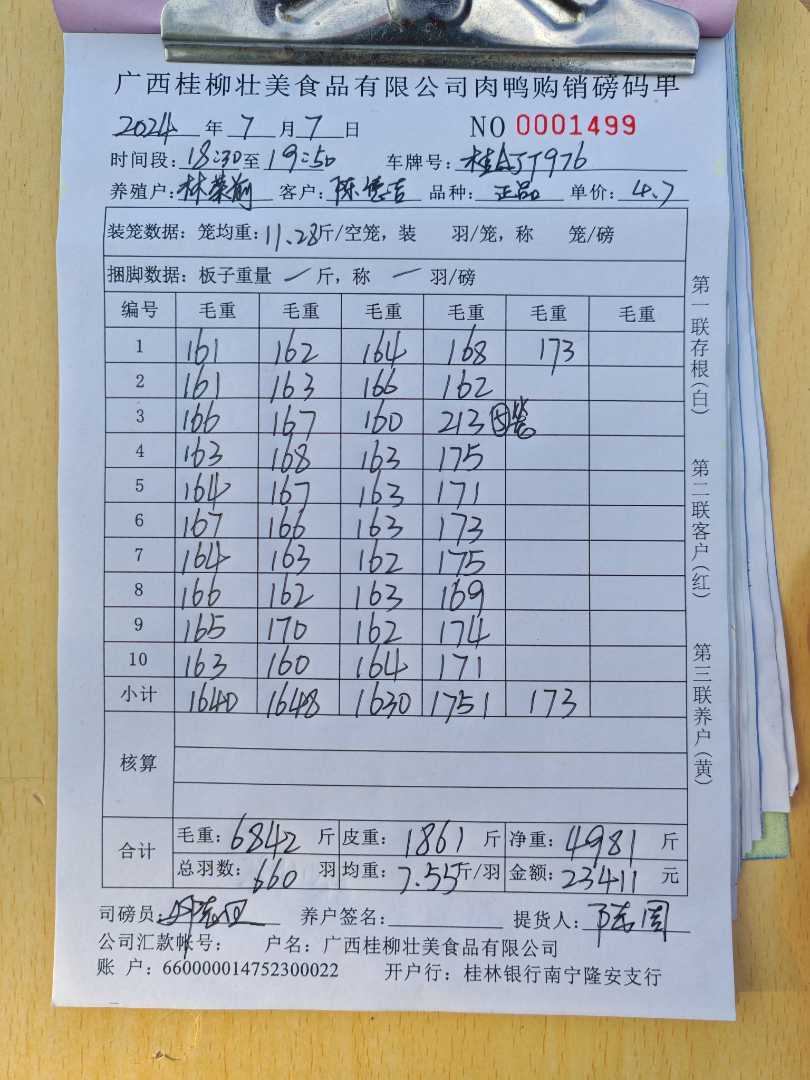 广西桂柳壮美食品有限公司肉鸭购销磅码单
2024 年 7 月 7 日 NO 0001499
时间段: 18:30 至 19:50 车牌号: 桂AJT976
养殖户: 林荣 客户: 陈 品种: 正品 单价: 4.7
装笼数据: 笼均重: 11.28 斤/空笼, 装 羽/笼, 称 笼/磅
捆脚数据: 板子重量 — 斤, 称 — 羽/磅
编号 毛重 毛重 毛重 毛重 毛重 毛重
1 161 162 164 168 173
2 161 163 166 162
3 166 167 160 213 笼
4 163 168 163 175
5 164 167 163 171
6 167 166 163 173
7 164 163 162 175
8 166 162 163 169
9 165 170 162 174
10 163 160 164 171
小计 1640 1648 1630 1751 173
核算
合计 毛重: 6842 斤 皮重: 1861 斤 净重: 4981 斤
总羽数: 660 羽 均重: 7.55 斤/羽 金额: 23411 元
司磅员: 养户签名: 提货人:
公司汇款帐号: 户名: 广西桂柳壮美食品有限公司
账 户: 660000014752300022 开户行: 桂林银行南宁隆安支行
第一联存根(白)
第二联客户(红)
第三联养户(黄)